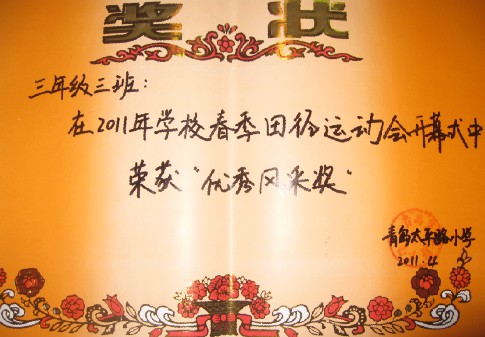 奖状
三年级三班：
在2011年学校春季田径运动会开幕式中
荣获"优秀风采奖"
青岛太平路小学
2011.4